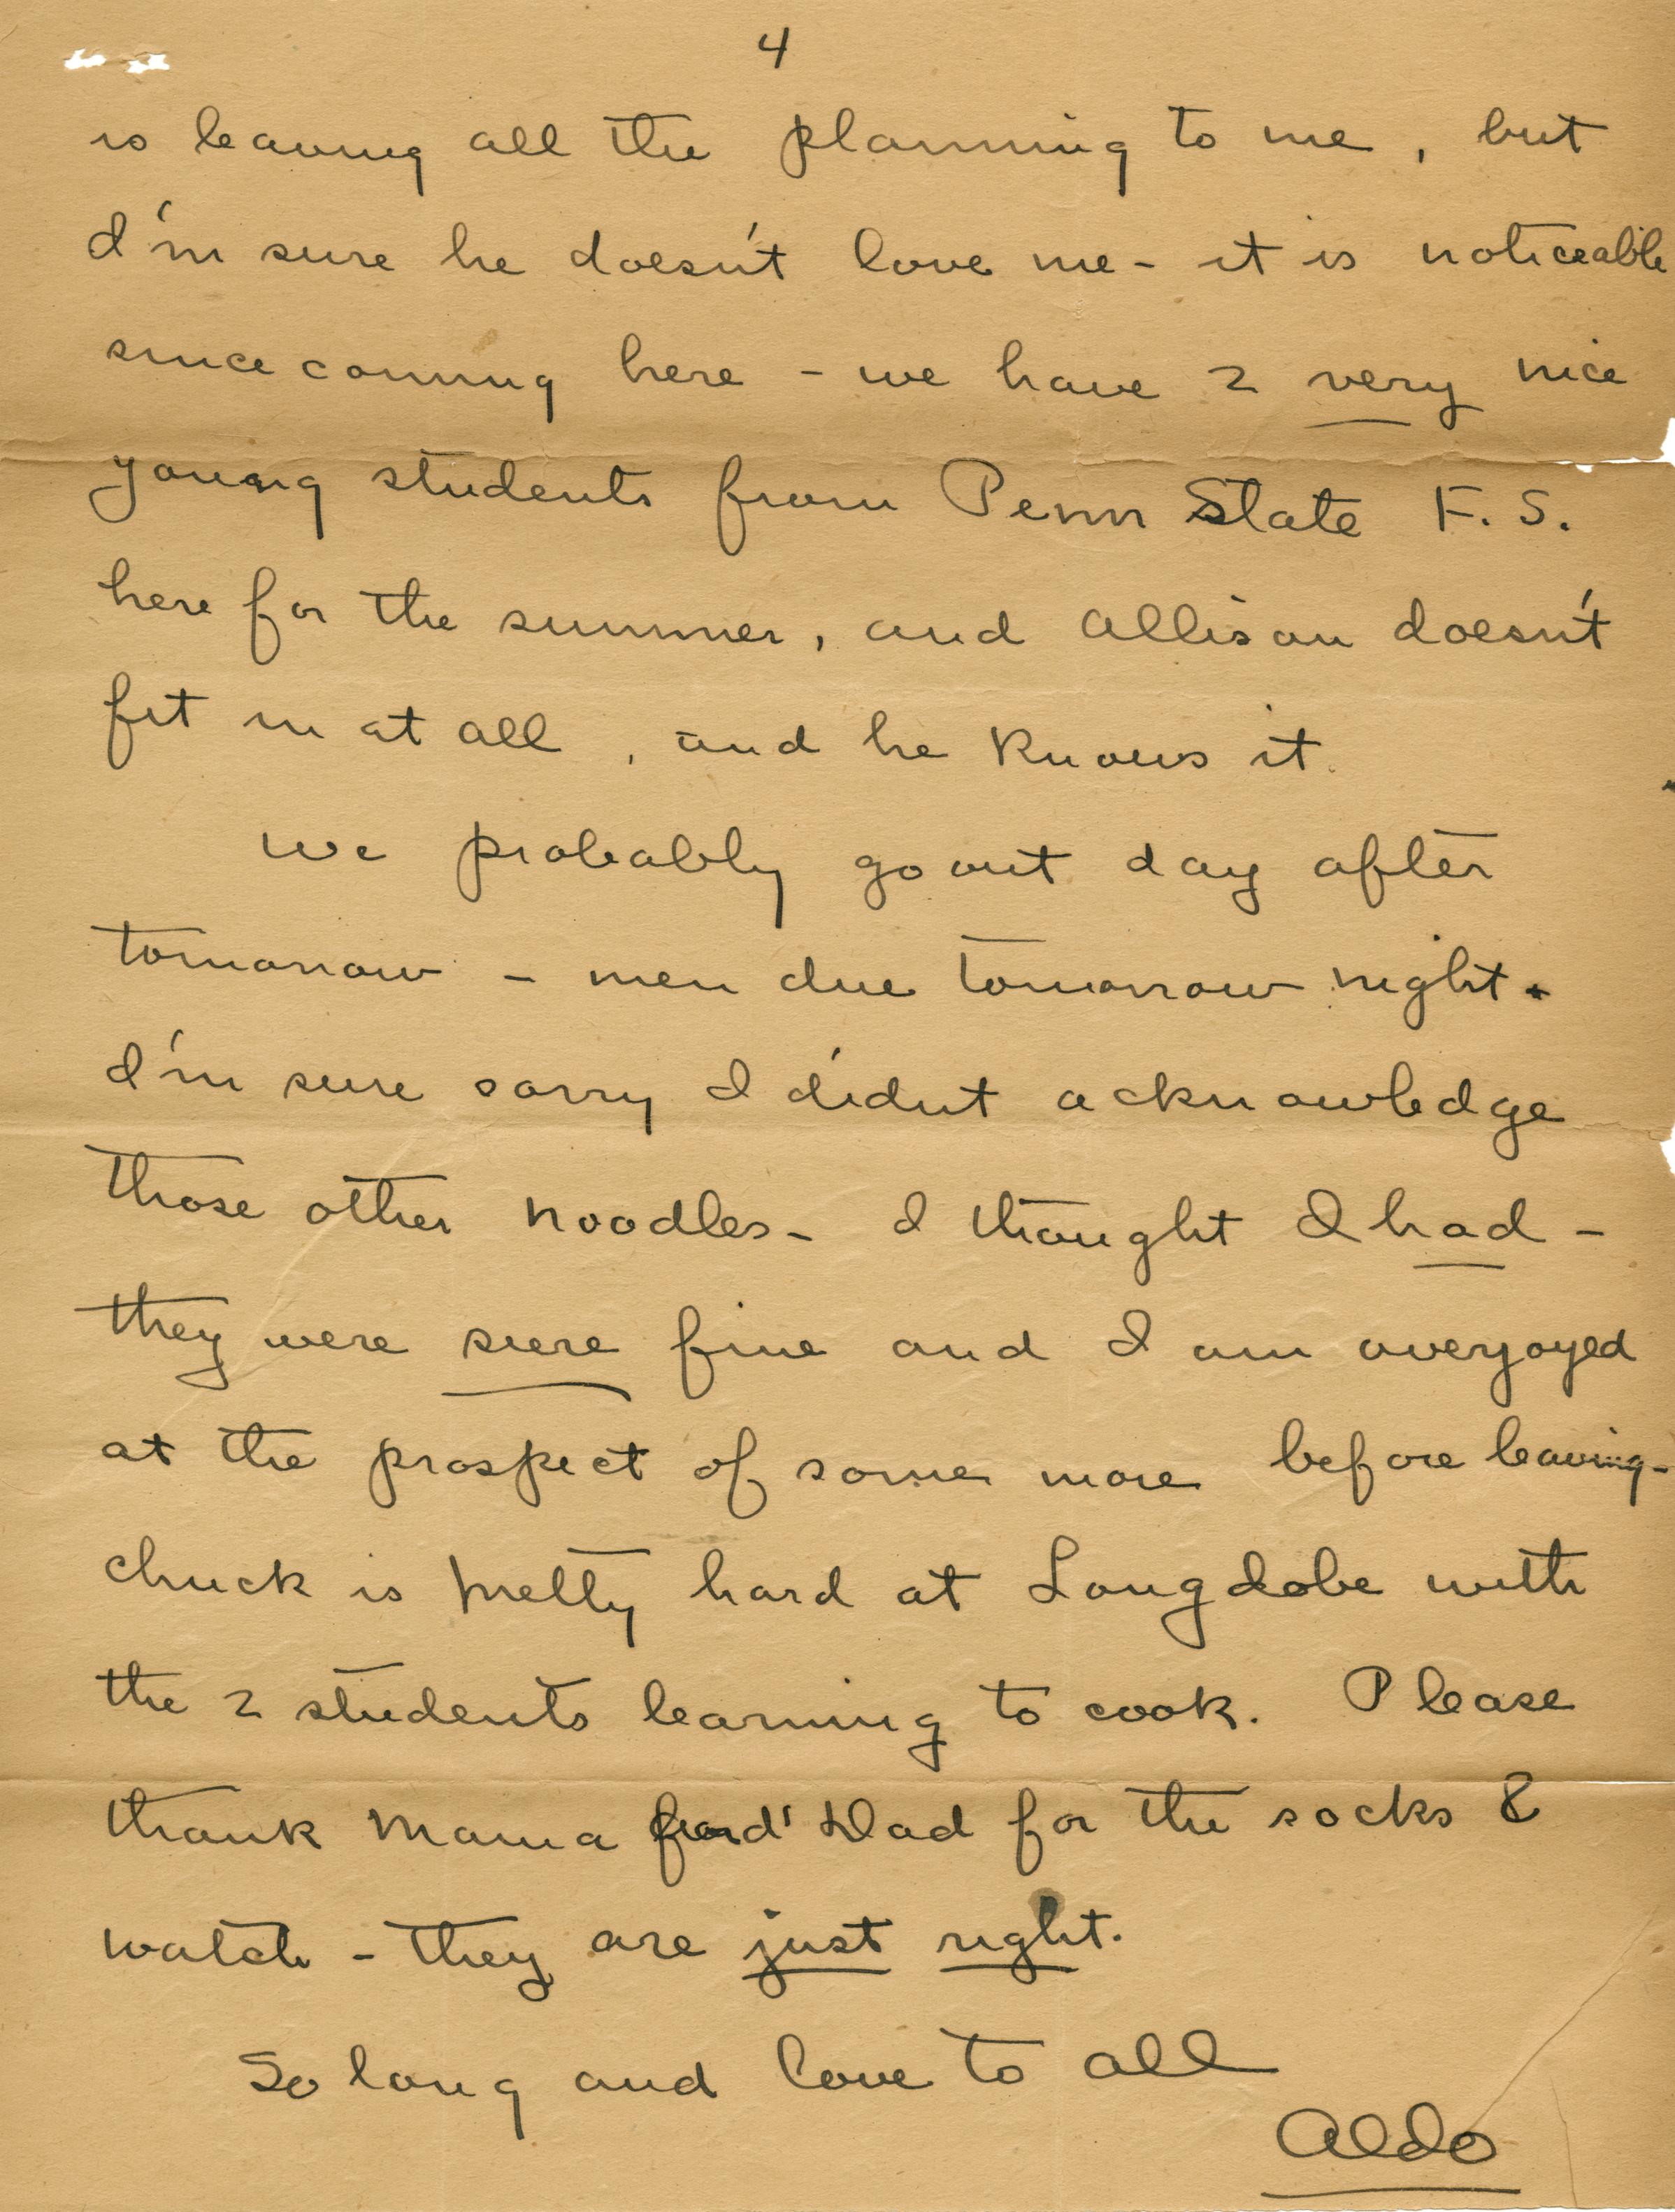 4
is leaving all the planning to me, but
I'm sure he doesn't love me - it is noticeable
since coming here - we have 2 very nice
young students from Penn State F. S.
here for the summer, and Allison doesn't
fit in at all, and he knows it.
We probably go out day after
tomorrow - men due tomorrow night.
I'm sure sorry I didn't acknowledge
those other noodles - I thought I had -
they were sure fine and I am overjoyed
at the prospect of some more before leaving -
chuck is pretty hard at Long dobe with
the 2 students learning to cook. Please
thank Mama Dad for the socks &
watch - they are just right.
So long and love to all
Aldo